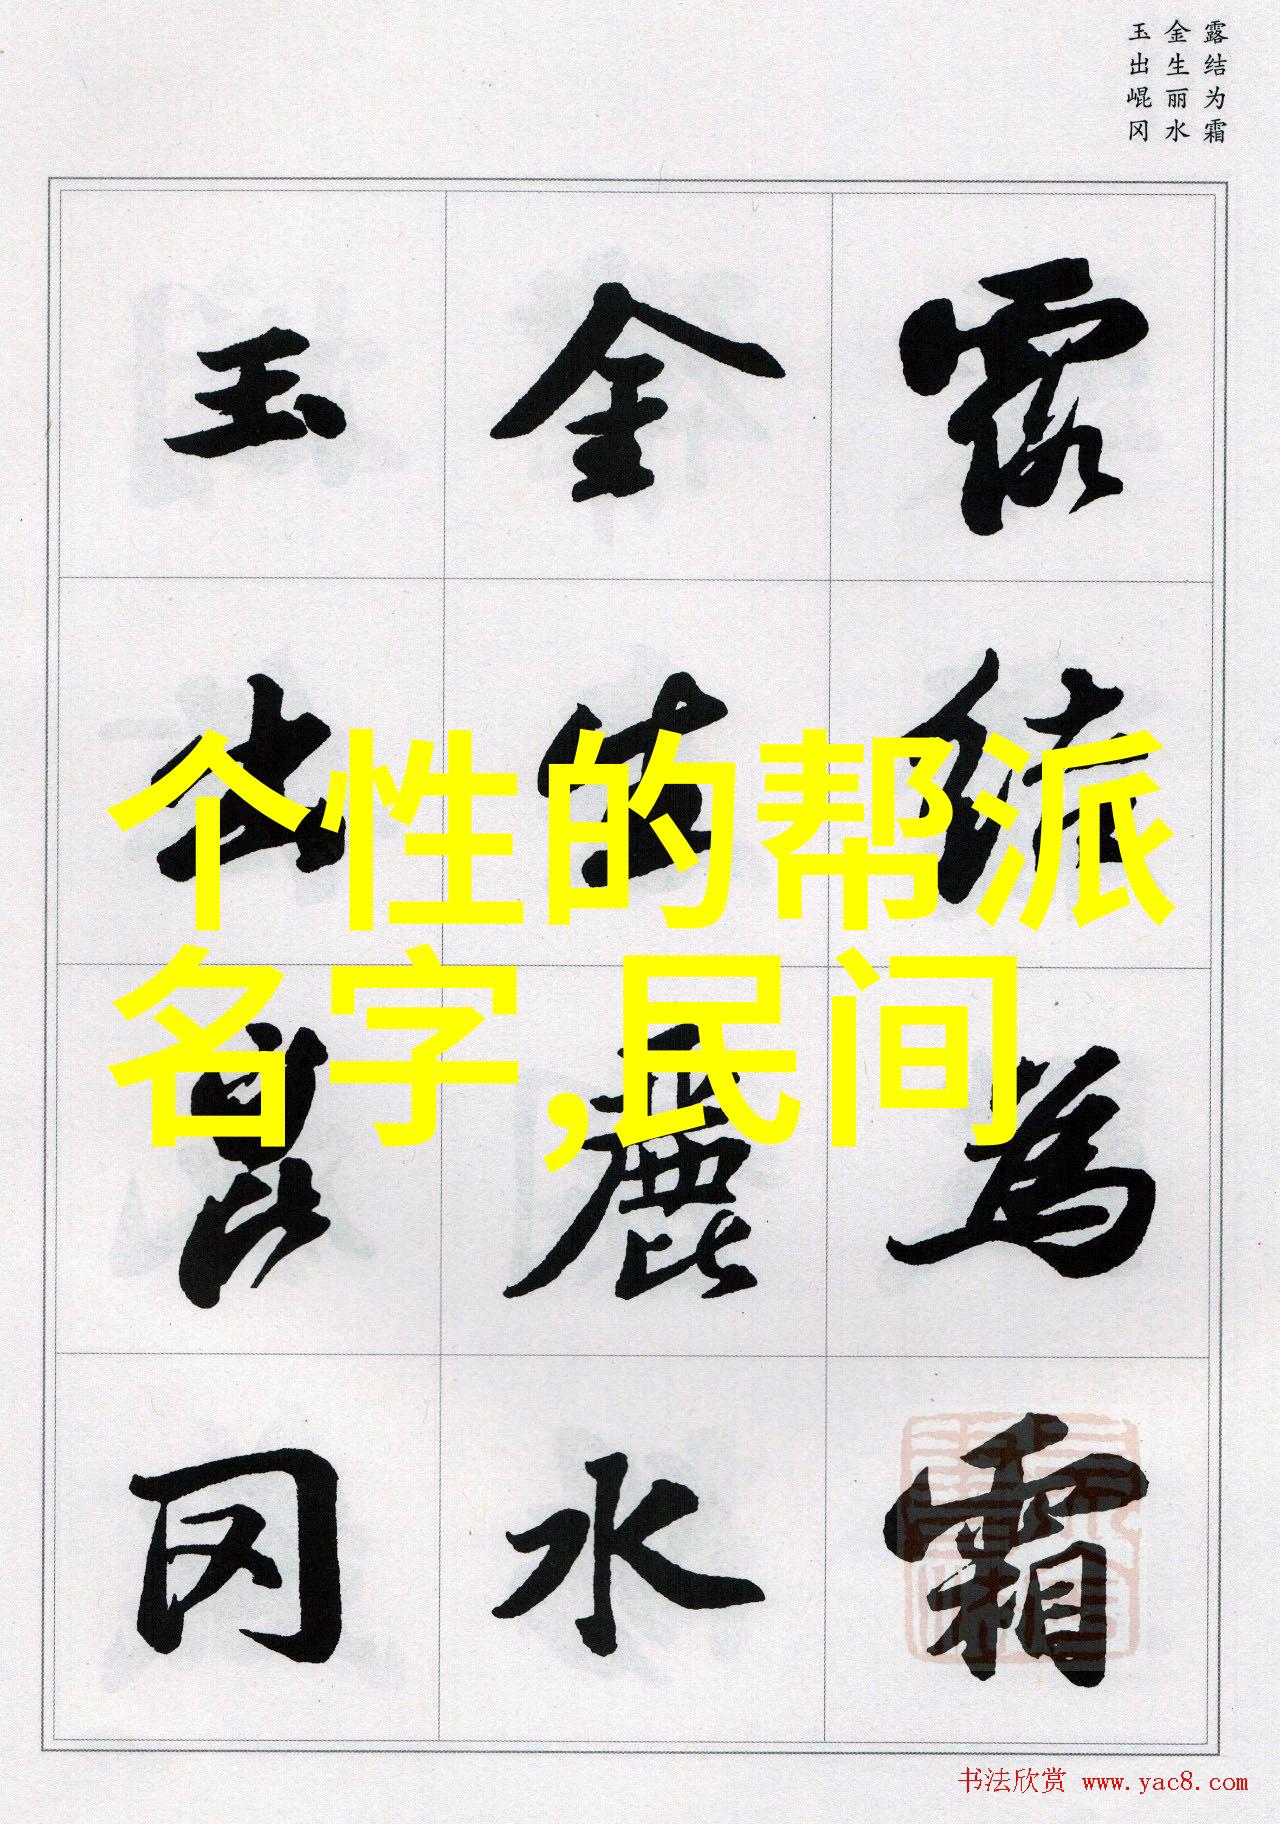 露结为霜
金生丽水
玉出崐冈
露结為霜
金生麗水
玉出崑冈
个性的帮派
名字,民间
书法欣赏 www.yac8.com